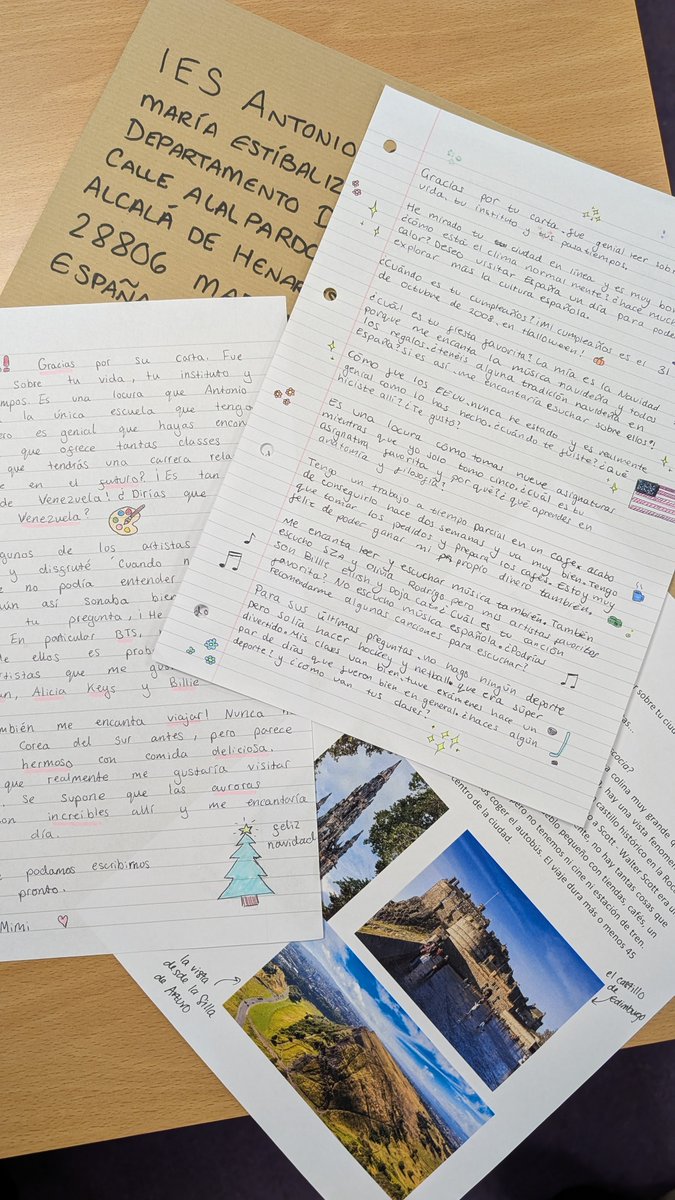 IES ANTONIO
MARÍA ESTÍBALIZ
DEPARTAMENTO D
CALLE ALALPARDO
ALCALÁ DE HENAR
28806 MA
ESPAÑA
Gracias por tu carta. fue genial leer sobre
vida, tu instituto y tus pasatiempos.
He mirado tu ciudad en línea y es muy bon
¿cómo está el clima normalmente? ¿hace much
calor? Deseo visitar España un día para poder
explorar más la cultura española.
¿Cuándo es tu cumpleaños? ¡Mi cumpleaños es el 31
de octubre de 2008, en Halloween!
¿cuál es tu fiesta favorita? La mía es la Navidad
porque me encanta la música navideña y todos
los regalos. ¿tenéis alguna tradición navideña en
España? Si es así, me encantaría escuchar sobre ellos.
Cómo fue los EEUU. nunca he estado y es realmente
genial como lo has hecho. ¿cuándo te fuiste? ¿Qué
hiciste allí? ¿Te gustó?
Es una locura cómo tomas nueve asignaturas
mientras que yo solo tomo cinco. ¿cuál es tu
asignatura favorita y por qué? ¿qué aprendes en
anatomía y filosofía?
Tengo un trabajo a tiempo parcial en un cafe. acabo
de conseguirlo hace dos semanas y va muy bien. Tengo
que tomar los pedidos y prepara los cafés. Estoy muy
feliz de poder ganar mi propio dinero también.
Me encanta leer y escuchar música también. También
escucho SZA y Olivia Rodrigo. pero mis artistas favoritos
son Billie Eilish y Doja Cat. ¿Cuál es tu canción
favorita? No escucho música española. ¿Podrías
recomendarme algunas canciones para escuchar?
Para sus últimas preguntas. no hago ningún deporte
pero solía hacer hockey y netball. que era súper
divertido. Mis clases van bien, tuve exámenes hace un
par de días que fueron bien en general. ¿haces algún
deporte? y ¿cómo van tus clases?
Gracias por su carta. Fue
sobre tu vida, tu instituto y
mpos. Es una locura que Antonio
la única escuela que teng
ero es genial que hayas encon
que ofrece tantas classes
que tendrás una carrera rela
e en el futuro? ¡Es tan
de Venezuela! ¿Dirías que
Venezuela?
gunos de los artistas
y disfruté 'Cuando n
e no podía entender
ún así sonaba bien
tu pregunta, ¡He
En particular BTS,
de ellos es prob
rtistas que me gu
an, Alicia Keys y Billie
ambién me encanta viajar! Nunca h
Corea del Sur antes, pero parece
hermoso con comida deliciosa.
que realmente me gustaría visitar
. Se supone que las auroras
on increíbles allí y me encantaría
día.
podamos escribirnos
pronto.
Mimi
feliz
navidad
sobre tu ciu
colina muy grande
hay una vista fenomen
castillo histórico en la Roc
a Scott. Walter Scott era u
no hay tantas cosas que
pueblo pequeño con tiendas, cafés, un
pero no tenemos ni cine ni estación de tren,
coger, el autobús. El viaje dura más o menos 45
centro de la ciudad
la vista
desde la Silla
de Arturo
el castillo
de Edimburgo